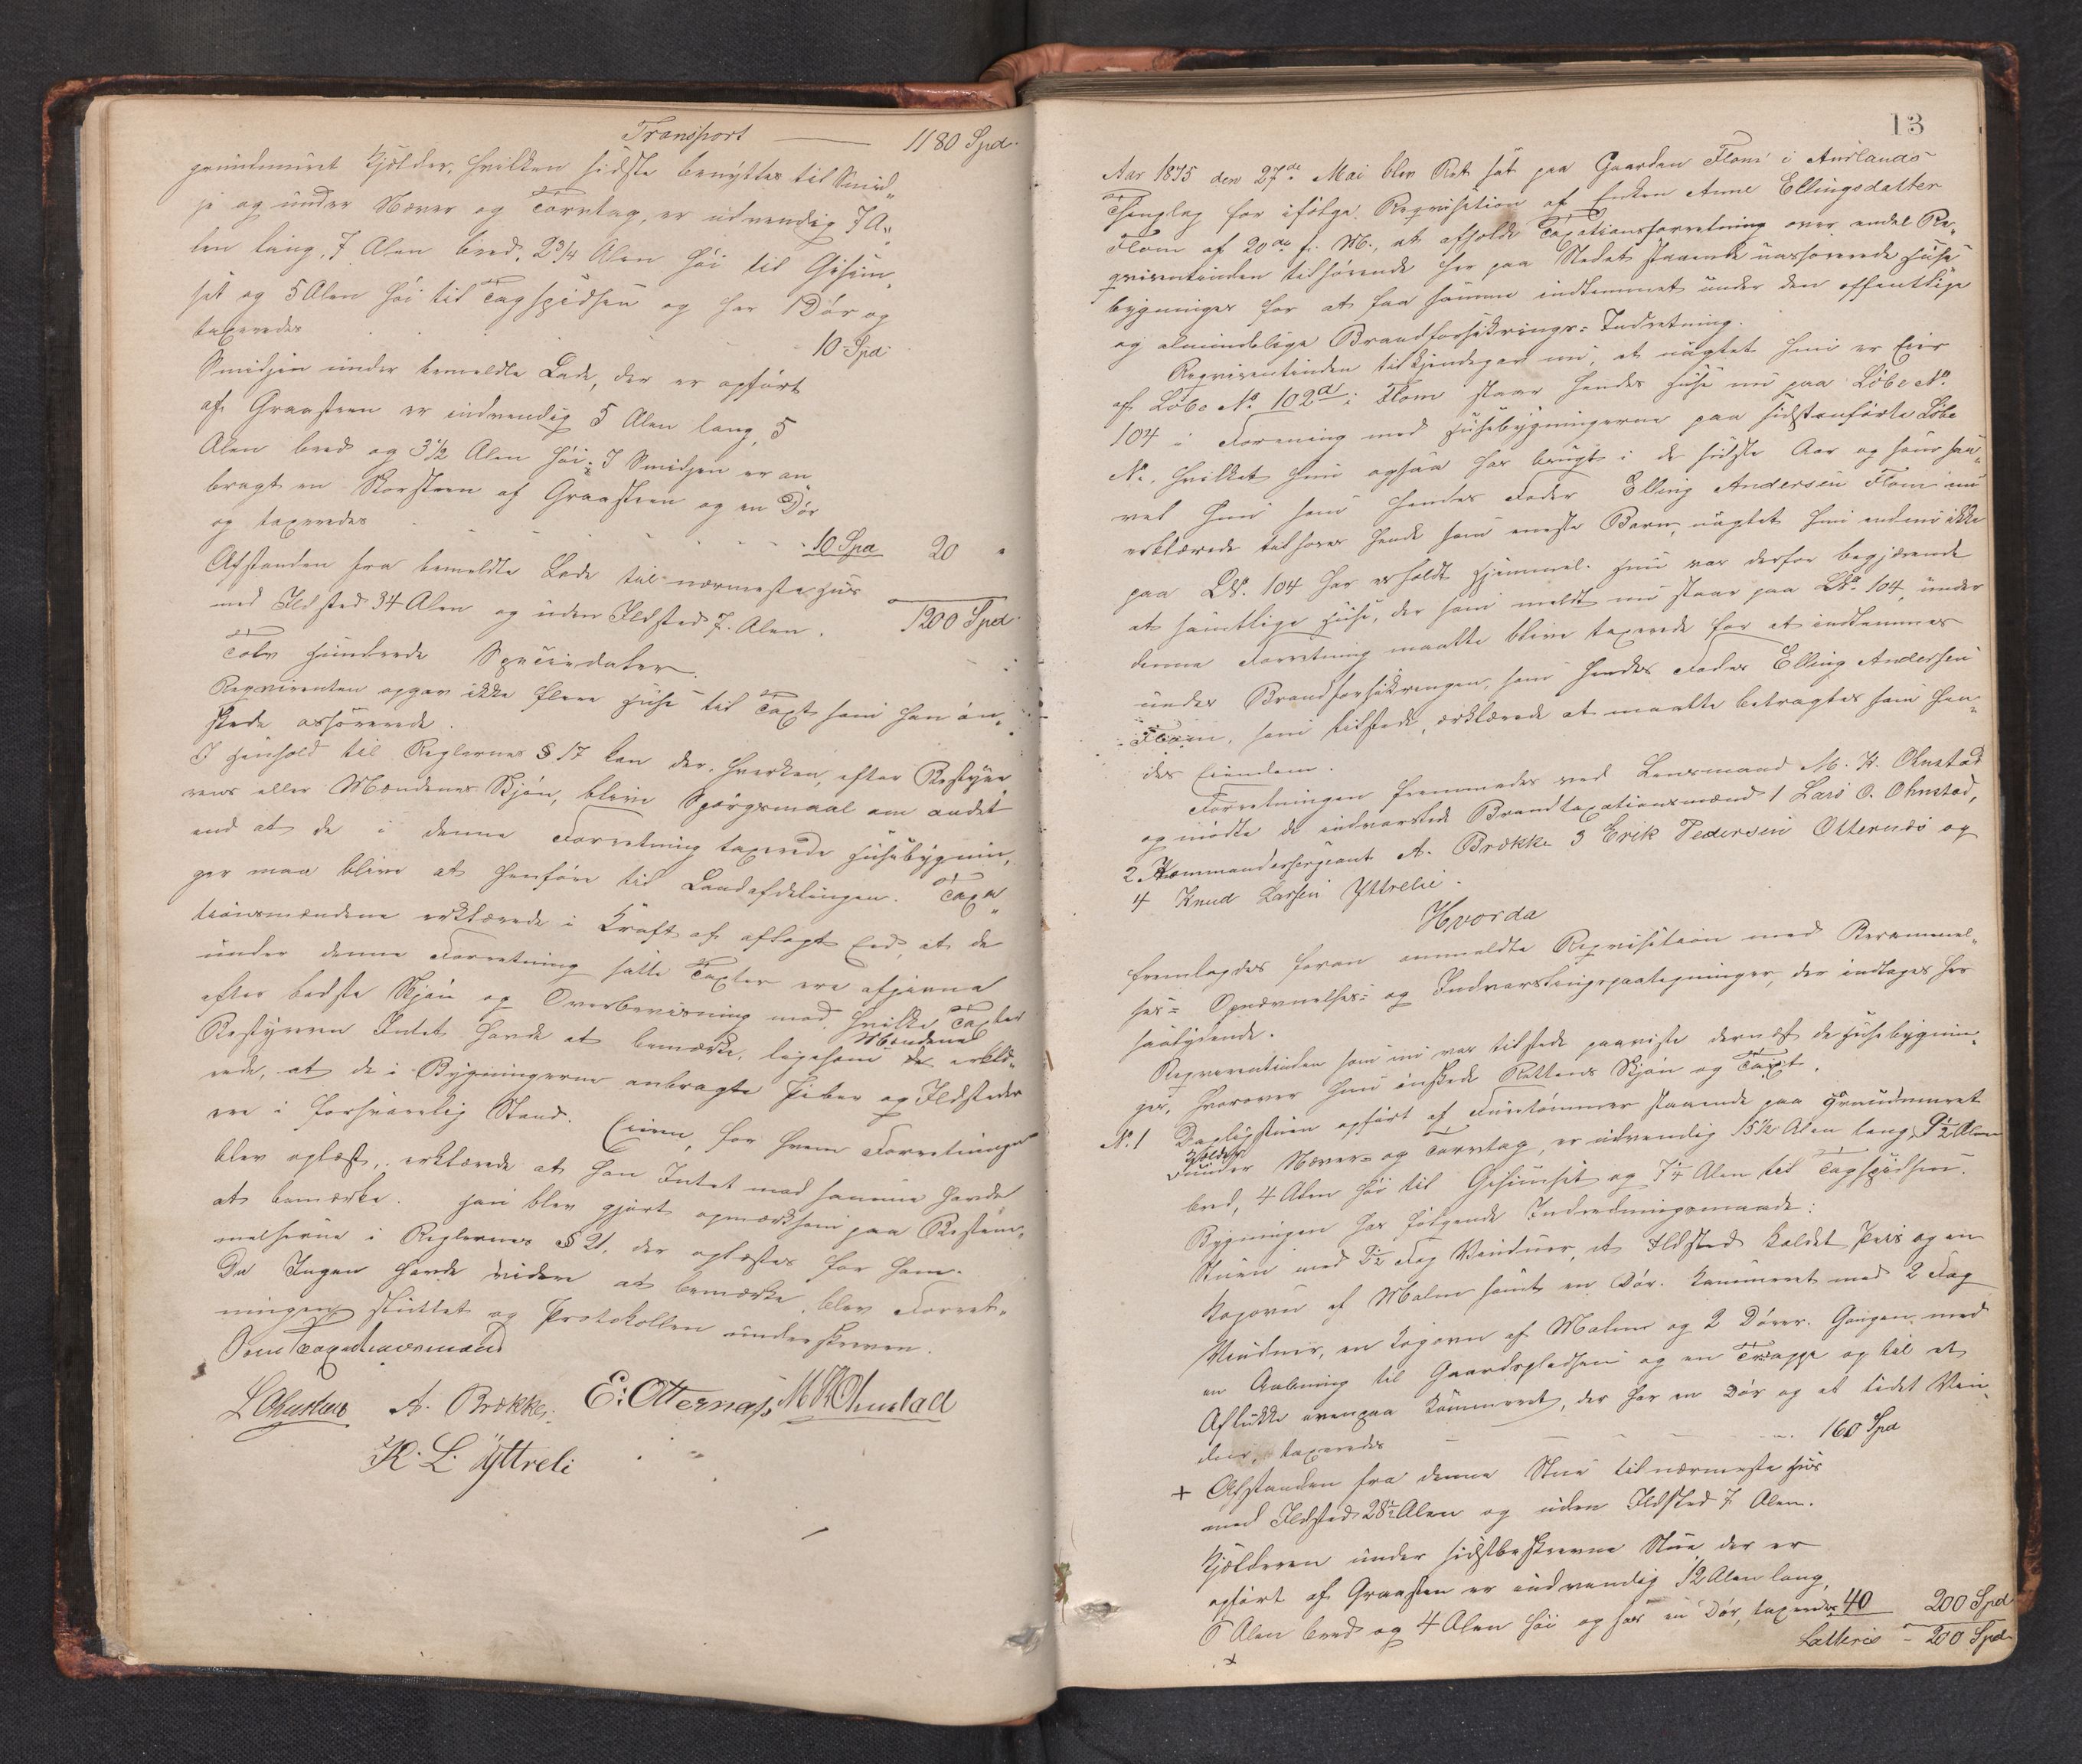 Transport — 1180 Spd.
grundmuret Kjelder, hvilken sidste benyttes til Smid„
je og under Næver og Torvtag, er udvendig 7 A„
len lang, 7 Alen bred, 2 3/4 Alen høi til Gesim„
set og 5 Alen høi til Tagspidsen og har 1 Dør og
taxeredes 10 Spd.
Smidjen under bemeldte Lade, der er opført
af Graasteen er indvendig 5 Alen lang, 5
Alen bred og 3 1/2 Alen høi; I Smidjen er an
bragt en Skorsteen af Graasteen og en Dør
og taxeredes 10 Spd 20 "
Afstanden fra bemeldte Lade til nærmeste Huus
med Ildsted 34 Alen og uden Ildsted 7 Alen. 1200 Spd.
Tolv Hundrede Speciedaler.
Reqvirenten opgav ikke flere Huse til Taxt som han øn„
skede assurerede.
I Henhold til Reglernes § 17 kan der, hverken, efter Besty„
rens eller Mændenes Skjøn, blive Spørgsmaal om andet
end at de i denne Forretning taxerede Husebygnin„
ger maa blive at henføre til Landafdelingen. Taxa„
tionsmændene erklærede i Kraft af aflagt Eed, at de
under denne Forretning satte Taxter ere afgivne
efter bedste Skjøn og Overbeviisning mod hvilke Taxter
Bestyreren Intet havde at bemærke, ligesom Mændene erklæ„
rede, at de i Bygningerne anbragte Piber og Ildsteder
ere i forsvarlig Stand. Eieren, for hvem Forretningen
blev oplæst, erklærede at han Intet mod samme havde
at bemærke. Han blev gjort opmærksom paa Bestem„
melserne i Reglernes § 21, der oplæstes for ham.
Da Ingen havde videre at bemærke, blev Forret„
ningen sluttet og Protokollen underskreven.
Som Taxationsmænd
L Ohnstad A. Brække. E: Otternæs M K Ohnstad
K. L. Yttreli
13
Aar 1875 den 27de Mai blev Ret sat paa Gaarden Flom i Aurlands
Thinglag for ifølge Reqvisition af Enken Anne Ellingsdatter
Flom af 20de f. M., at afholde Taxationsforretning over endel Re„
qvirentinden tilhørende her paa Stedet staaende uassurerede Huse
bygninger for at faa samme indlemmet under den offentlige
og almindelige Brandforsikrings-Indretning.
Reqvirentinden tilkjendegav nu, at uagtet hun er Eier
af Løbe No 102a i Flom staar hendes Huse nu paa Løbe No
104 i Forening med Husebygningerne paa sidstanførte Løbe
No, hvilket hun ogsaa har brugt i de sidste Aar og som saa„
vel hun som hendes Fader Elling Andersen Flom nu
erklærede tilhører hende som eneste Barn, uagtet hun endnu ikke
paa LNo 104 har erholdt Hjemmel. Hun var derfor begjærende
at samtlige Huse, der som meldt nu staar paa LNo 104, under
denne Forretning maatte blive taxerede for at indlemmes
under Brandforsikringen, som hendes Fader Elling Andersen
Flom, som tilstede, erklærede at maatte betragtes som hen„
des Eiendom.
Forretningen fremmedes ved Lensmand M. K. Ohnstad
og mødte de indvarslede Brandtaxationsmænd 1 Lars O. Ohnstad,
2 Kommandersergeant A. Brække 3 Erik Pedersen Otternæs og
4 Knud Larsen Yttrelie.
Hvorda
fremlagdes foran anmeldte Reqvisition med Berammel„
ses- Opnævnelses- og Indvarslingspaategninger, der indtages her
saalydende.
Reqvirentinden som nu var tilstede paaviste dernæst de Husebygnin„
ger, hvorover hun ønskede Rettens Skjøn og Taxt.
No. 1 Dagligstuen opført af Furutømmer staaende paa grundmuret
Kjelder
under Næver- og Torvtag, er udvendig 15 1/2 Alen lang, 9 1/2 Alen
bred, 4 Alen høi til Gesimset og 7 1/4 Alen til Tagspidsen.
Bygningen har følgende Indredningsmaade:
Stuen med 5 1/2 Fag Vinduer, et Ildsted kaldet Peis og en
Kogovn af Malm samt en Dør. Kammeret med 2 Fag
Vinduer, en Kogovn af Malm og 2 Dører. Gangen med
en Aabning til Gaardspladsen og en Trappe og til et
Aflukke ovenpaa Kammeret, der har en Dør og et lidet Vin„
due, taxeredes 160 Spd
+ Afstanden fra denne Stue til nærmeste Huus
med Ildsted 28 1/2 Alen og uden Ildsted 7 Alen.
Kjelderen under sidstbeskrevne Stue, der er
opført af Graasten er indvendig 12 Alen lang,
6 Alen bred og 4 Alen høi og har en Dør, taxeredes 40 200 Spd
Latteris - 200 Spd.
+